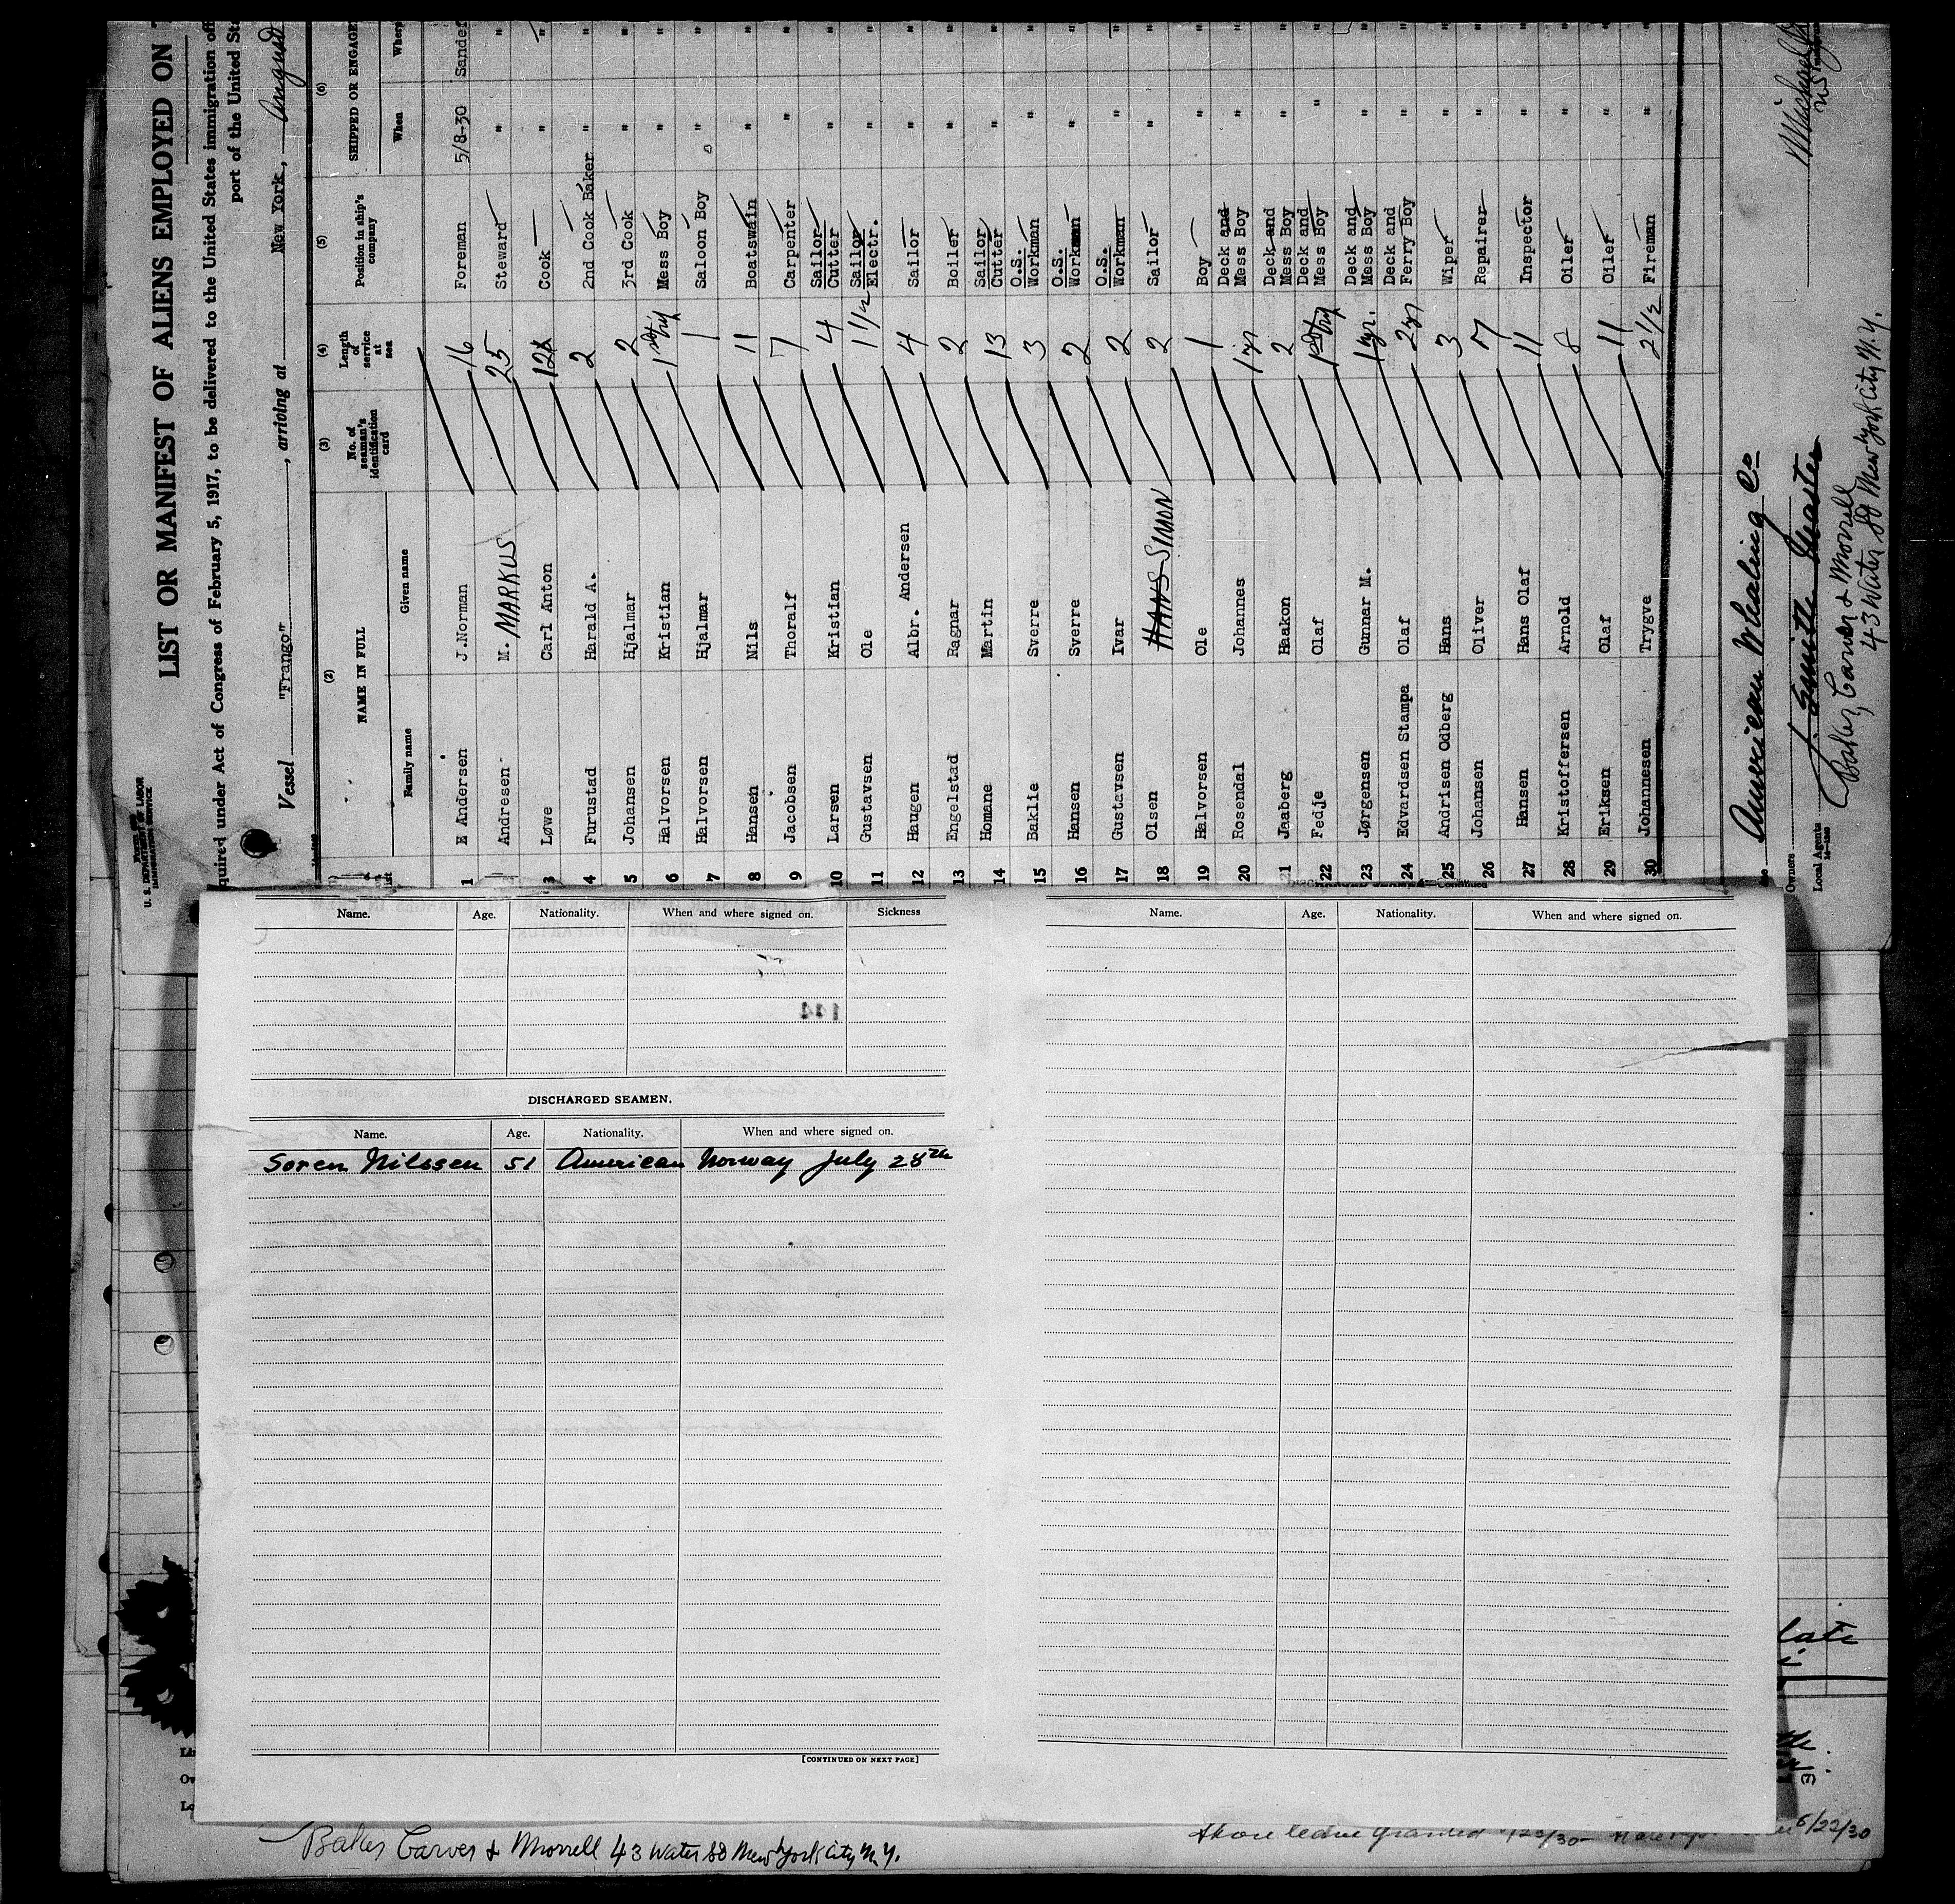 U. S. DEPARTMENT OF LABOR
IMMIGRATION SERVICE
LIST OR MANIFEST OF ALIENS EMPLOYED ON
quired under Act of Congress of February 5, 1917, to be delivered to the United States immigration
port of the United
Vessel "Frango" , arriving at New York,
(2) (3) (4) (5) (6)
NAME IN FULL No. of seaman's identification card Length of service at sea Position in ship's company SHIPPED OR ENGAGE
Family name Given name When
1 E Andersen J.Norman 16 Foreman 5/8-30 Sandef
Andresen M. MARKUS 25 Steward " "
3 Løwe Carl Anton 12 Cook " "
4 Furustad Harald A. 2 2nd Cook Baker " "
5 Johansen Hjalmar 2 3rd Cook " "
6 Halvorsen Kristian 1st trip Mess Boy " "
7 Halvorsen Hjalmar 1 Saloon Boy " "
8 Hansen Nils 11 Boatswain " "
9 Jacobsen Thoralf 7 Carpenter " "
10 Larsen Kristian 4 Sailor Cutter " "
11 Gustavsen Ole 1 1/2 Sailor Electr. " "
12 Haugen Albr. Andersen 4 Sailor " "
13 Engelstad Ragnar 2 Boiler " "
14 Homane Martin 13 Sailor Cutter " "
15 Baklie Sverre 3 O.S. Workman " "
16 Hansen Sverre 2 O.S. Workman " "
17 Gustavsen Ivar 2 O.S. Workman " "
18 Olsen HANS SIMON 2 Sailor " "
19 Halvorsen Ole 1 Boy " "
20 Rosendal Johannes 1 yr Deck and Mess Boy " "
21 Jaaberg Haakon 2 Deck and Mess Boy " "
22 Fedje Olaf 1st trip Deck and Mess Boy " "
23 Jørgensen Gunnar M. 1 yr. Deck and Mess Boy " "
24 Edvardsen Stampa Olaf 2 yr Deck and Ferry Boy " "
25 Andrisen Odberg Hans 3 Wiper " "
26 Johansen Oliver 7 Repairer " "
27 Hansen Hans Olaf 11 Inspector " "
28 Kristoffersen Arnold 8 Oiler " "
29 Eriksen Olaf 11 Oiler " "
30 Johannesen Trygve 2 1/2 Fireman " "
American Whaling Co
Owners
Local Agents Baker, Carver & Morrell
43 Water St New York City N.Y.
Name. Age. Nationality. When and where signed on. Sickness
DISCHARGED SEAMEN.
Name. Age. Nationality. When and where signed on.
Soren Nilssen 51 American Norway July 28th
[CONTINUED ON NEXT PAGE]
Name. Age. Nationality. When and where signed on.
Baker Carver & Morrell 43 Water St New York City N.Y.
Shore leave granted